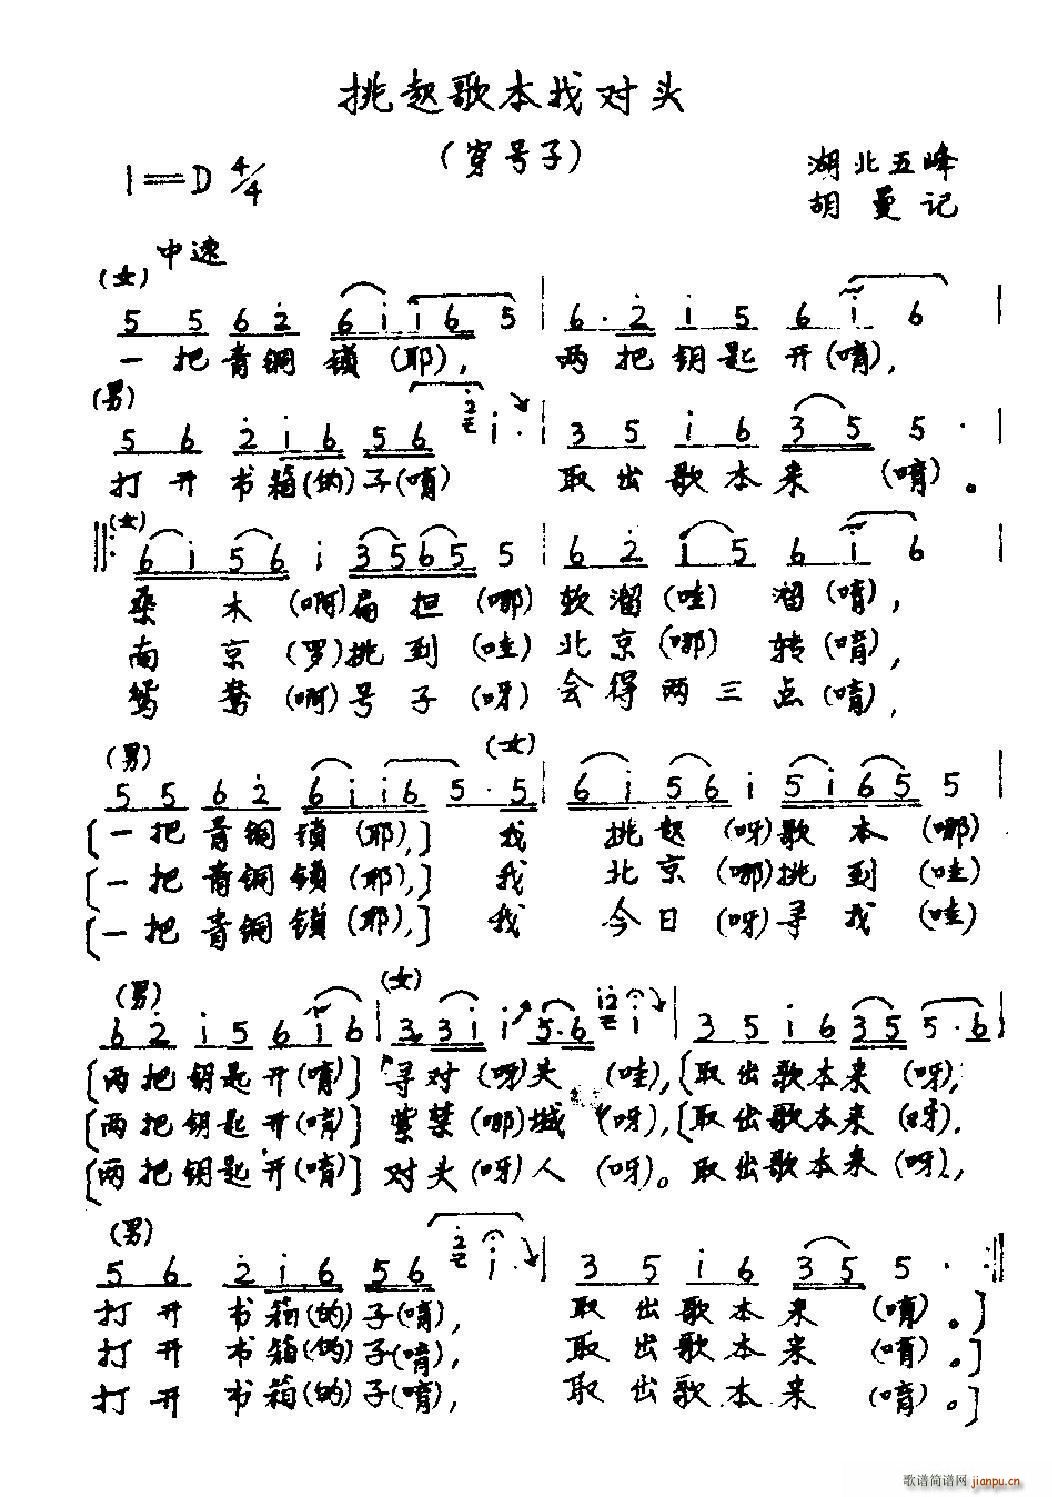 挑起歌本找对头
(穿号子)
1=D 4/4
湖北五峰
胡曼记
中速
(女)
5 5 6 2̇ 6 i i 6 5 | 6· 2̇ i 5 6 i 6 |
一把青铜锁(耶), 两把钥匙开(唷),
(男)
5 6 2̇ i 6 5 6 2̇ i· | 3 5 i 6 3 5 5· |
打开书箱(的)子(唷) 取出歌本来(唷)。
(女)
‖: 6 i 5 6 i 3 5 6 5 5 | 6 2̇ i 5 6 i 6 |
桑木(啊)扁担(哪)软溜(哇)溜(唷),
南京(罗)挑到(哇)北京(哪)转(唷),
鸳鸯(啊)号子(呀)会得两三点(唷),
(男) (女)
5 5 6 2̇ 6 i i 6 5· 5 | 6 i 5 6 i 5 i 6 5 5 |
[一把青铜锁(耶),] 我挑起(呀)歌本(哪)
[一把青铜锁(耶),] 我北京(哪)挑到(哇)
[一把青铜锁(耶),] 我今日(呀)寻找(哇)
(男) (女)
6 2̇ i 5 6 i 6 | 3 3 i i 5·6 i 2̇ i | 3 5 i 6 3 5 5·6 |
[两把钥匙开(唷)] 寻对(呀)头(哇),[取出歌本来(呀),
[两把钥匙开(唷)] 紫禁(哪)城(呀),[取出歌本来(呀),
[两把钥匙开(唷)] 对头(呀)人(呀)。取出歌本来(呀),
(男)
5 6 2̇ i 6 5 6 2̇ i | 3 5 i 6 3 5 5· :‖
打开书箱(的)子(唷), 取出歌本来(唷)。]
打开书箱(的)子(唷), 取出歌本来(唷)。]
打开书箱(的)子(唷), 取出歌本来(唷)。]
歌谱简谱网 jianpu.cn